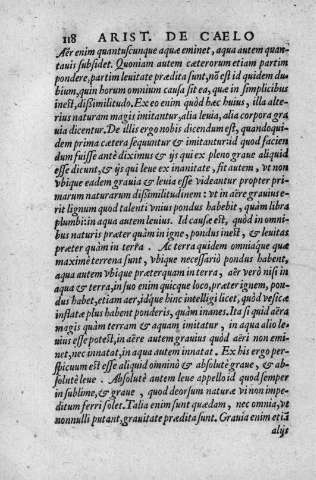 118 ARIST. DE CAELO
Aër enim quantuscunque aquæ eminet, aqua autem quan-
tauis subsidet. Quoniam autem cæterorum etiam partim
pondere, partim leuitate prædita sunt, nō est id quidem du-
bium, quin horum omnium causa sit ea, quæ in simplicibus
inest, dißimilitudo. Ex eo enim quòd hæc huius, illa alte-
rius naturam magis imitantur, alia leuia, alia corpora gra
uia dicentur. De illis ergo nobis dicendum est, quandoqui-
dem prima cætera sequuntur & imitantur: id quod facien
dum fuisse antè diximus & ijs qui ex pleno graue aliquid
esse dicunt, & ijs qui leue ex inanitate, fit autem, vt non
vbique eadem grauia & leuia esse videantur propter pri-
marum naturarum dißimilitudinem: vt in aëre grauius e-
rit lignum quod talenti vnius pondus habebit, quàm libra
plumbi: in aqua autem leuius. Id causæ est, quòd in omni-
bus naturis præter quàm in igne, pondus inest, & leuitas
præter quàm in terra. Ac terra quidem omniaque quæ
maximè terrena sunt, vbique necessariò pondus habent,
aqua autem vbique præterquam in terra, aër verò nisi in
aqua & terra, in suo enim quicque loco, præter ignem, pon-
dus habet, etiam aër, idque hinc intelligi licet, quòd vesicæ
inflatæ plus habent ponderis, quàm inanes. Ita si quid aëra
magis quàm terram & aquam imitatur, in aqua alio le-
uius esse potest, in aëre autem grauius quòd aëri non emi-
net, nec innatat, in aqua autem innatat. Ex his ergo per-
spicuum est esse aliquid omninò & absolutè graue, & ab-
solutè leue. Absolutè autem leue appello id quod semper
in sublime, & graue, quod deorsum naturæ vi non impe-
ditum ferri solet. Talia enim sunt quædam, nec omnia, vt
nonnulli putant, grauitate prædita sunt. Grauia enim etiā
alijs